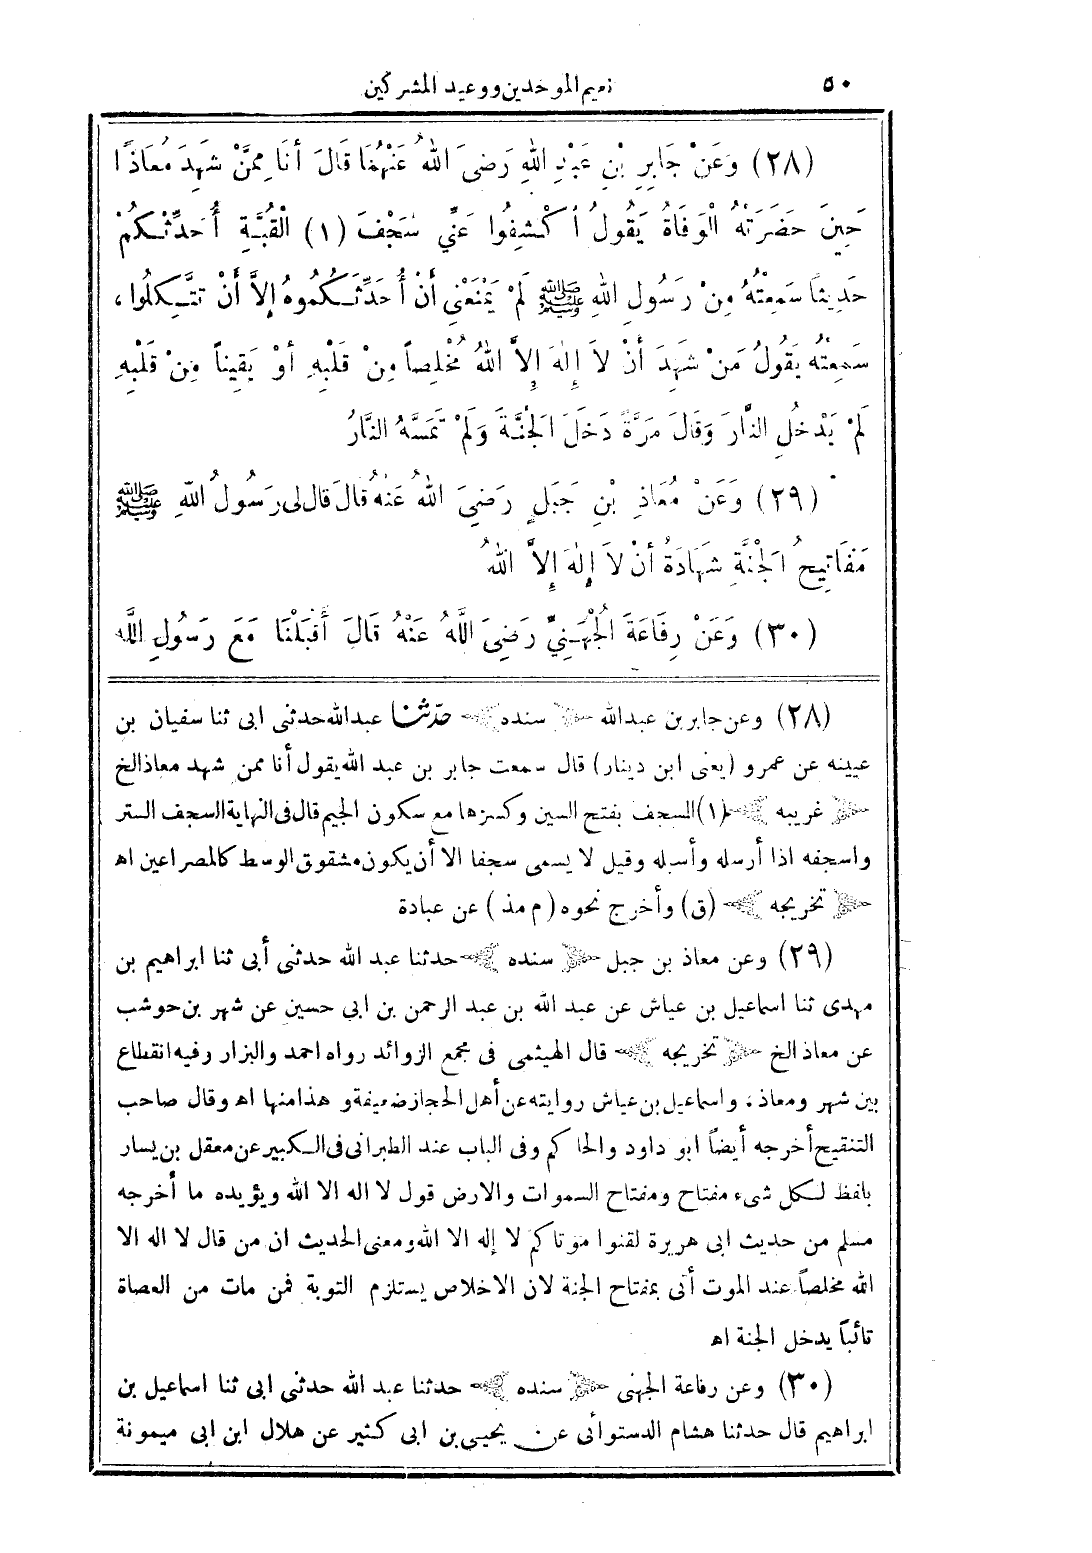 ٥٠
نعيم الموحدين ووعيد المشركين
(٢٨) وَعَنْ جَابِرِ بْنِ عَبْدِ اللهِ رَضِىَ اللهُ عَنْهُمَا قَالَ أَنَا مِمَّنْ شَهِدَ مُعَاذًا
حِينَ حَضَرَتْهُ الْوَفَاةُ يَقُولُ أكْشِفُوا عَنِّي سَجْفَ (١) الْقُبَّةِ أُحَدِّثْكُمْ
حَدِيثًا سَمِعْتُهُ مِنْ رَسُولِ اللهِ ﷺ لَمْ يَمْنَعْنِي أَنْ أُحَدِّثَكُمُوهُ إِلاَّ أَنْ تَتَّكِلُوا،
سَمِعْتُهُ يَقُولُ مَنْ شَهِدَ أَنْ لاَ إِلٰهَ إِلاَّ اللهُ مُخْلِصاً مِنْ قَلْبِهِ أَوْ يَقِيناً مِنْ قَلْبِهِ
لَمْ يَدْخُلِ النَّارَ وَقَالَ مَرَّةً دَخَلَ الْجَنَّةَ وَلَمْ تَمَسَّهُ النَّارُ
(٢٩) وَعَنْ مُعَاذِ بْنِ جَبَلٍ رَضِيَ اللهُ عَنْهُ قَالَ قَالَ لِى رَسُولُ اللهِ ﷺ
مَفَاتِيحُ الْجَنَّةِ شَهَادَةُ أَنْ لاَ إِلٰهَ إِلاَّ اللهُ
(٣٠) وَعَنْ رِفَاعَةَ الْجُهَنِيِّ رَضِىَ اللَّهُ عَنْهُ قَالَ أَقْبَلْنَا مَعَ رَسُولِ اللَّهِ
(٢٨) وعن جابر بن عبدالله ﴿سنده﴾ حدّثنا عبدالله حدثنى ابى ثنا سفيان بن
عيينه عن عمرو (يعنى ابن دينار) قال سمعت جابر بن عبد الله يقول أنا ممن شهد معاذ الخ
﴿غريبه﴾ (١) السجف بفتح السين وكسرها مع سكون الجيم قال فى النهاية السجف الستر
واسجفه اذا أرسله وأسبله وقيل لا يسمى سجفا الا أن يكون مشقوق الوسط كالمصراعين اه
﴿تخريجه﴾ (ق) وأخرج نحوه (م مذ) عن عبادة
(٢٩) وعن معاذ بن جبل ﴿سنده﴾ حدثنا عبد الله حدثنى أبى ثنا ابراهيم بن
مهدى ثنا اسماعيل بن عياش عن عبد الله بن عبد الرحمن بن ابي حسين عن شهر بن حوشب
عن معاذ الخ ﴿تخريجه﴾ قال الهيثمى فى مجمع الزوائد رواه احمد والبزار وفيه انقطاع
بين شهر ومعاذ، واسماعيل بن عياش روايته عن أهل الحجاز ضعيفة وهذا منها اه وقال صاحب
التنقيح أخرجه أيضاً ابو داود والحاكم وفى الباب عند الطبرانى فى الكبير عن معقل بن يسار
بلفظ لكل شىء مفتاح ومفتاح السموات والارض قول لا اله الا الله ويؤيده ما أخرجه
مسلم من حديث ابى هريرة لقنوا موتاكم لا إله الا الله ومعنى الحديث ان من قال لا اله الا
الله مخلصاً عند الموت أتى بمفتاح الجنة لان الاخلاص يستلزم التوبة فمن مات من العصاة
تائباً يدخل الجنة اه
(٣٠) وعن رفاعة الجهنى ﴿سنده﴾ حدثنا عبد الله حدثنى ابى ثنا اسماعيل بن
ابراهيم قال حدثنا هشام الدستوأئى عن يحيى بن ابى كثير عن هلال ابن ابى ميمونة